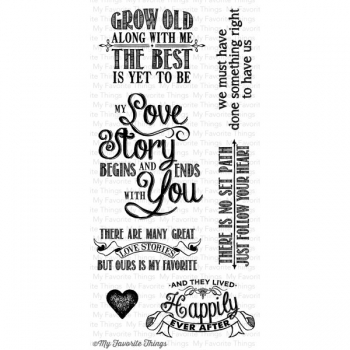 GROW OLD
ALONG WITH ME
THE BEST
IS YET TO BE
we must have
done something right
to have us
MY Love
Story
BEGINS AND ENDS
WITH You
THERE IS NO SET PATH
JUST FOLLOW YOUR HEART
THERE ARE MANY GREAT
LOVE STORIES
BUT OURS IS MY FAVORITE
AND THEY LIVED
Happily
EVER AFTER
©My Favorite Things